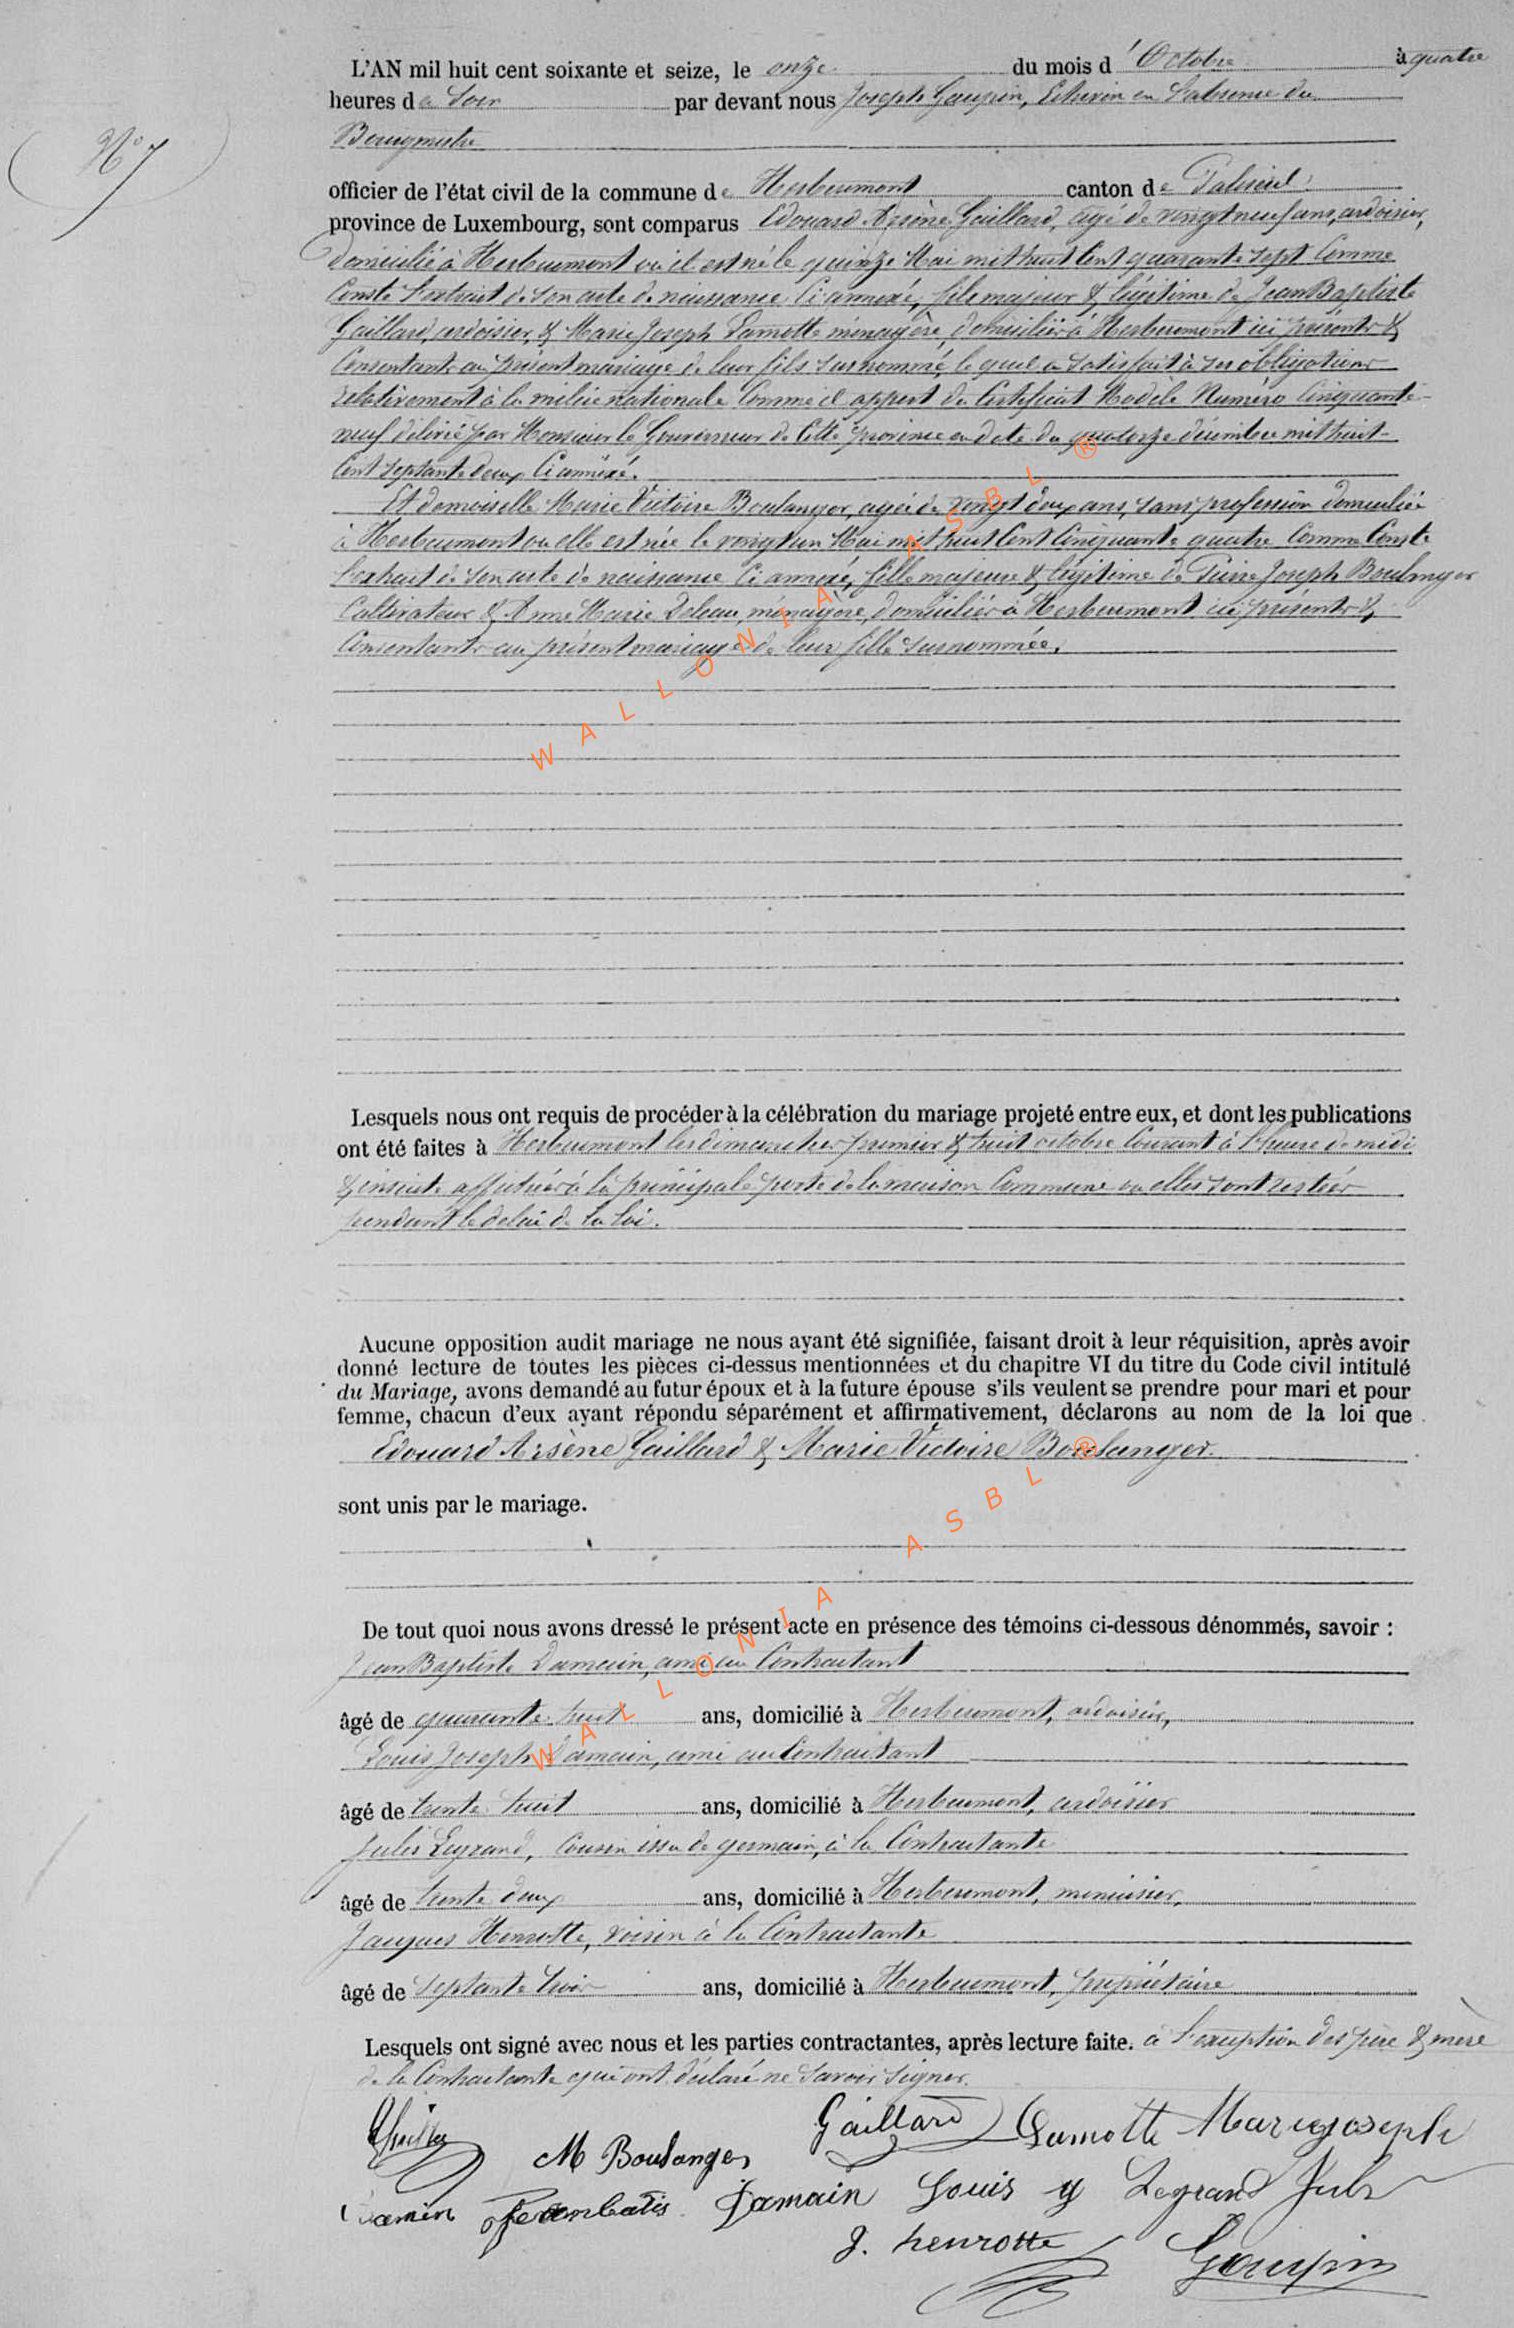 N° 7
L'AN mil huit cent soixante et seize, le onze du mois d'Octobre à quatre
heures de Soir par devant nous Joseph Goupin, Echevin en l'absence du
Bourgmestre
officier de l'état civil de la commune de Herbeumont canton de Paliseul
province de Luxembourg, sont comparus Edouard Arsène Gaillard, agé de vingt neuf ans, ardoisier,
domicilié à Herbeumont où il est né le quinze Mai mil huit Cent quarante sept Comme
Conste l'extrait de son acte de naissance Ci annexé, fils majeur & légitime de Jean Baptiste
Gaillard, ardoisier, & Marie Joseph Lamotte ménagère, domiciliés à Herbeumont ici présents &
Consentants au présent mariage de leur fils surnommé, le quel a satisfait à ses obligations
relativement à la milice nationale Comme il appert du Certificat Modèle Numéro Cinquante-
neuf délivré par Monsieur le Gouverneur de Cette province en date du quatorze décembre mil huit-
Cent septante deux Ci annéxé.
Et demoiselle Marie Victoire Boulanger, agée de vingt deux ans, sans profession domiciliée
à Herbeumont ou elle est née le vingt un Mai mil huit Cent Cinquante quatre Comme Conste
l'extrait de son acte de naissance Ci annexé, fille majeure & légitime de Pierre Joseph Boulanger
Cultivateur & Anne Marie Deleau, ménagère, domiciliés à Herbeumont ici présents &
Consentants au présent mariage de leur fille surnommée.
WALLONIA ASBL ®
Lesquels nous ont requis de procéder à la célébration du mariage projeté entre eux, et dont les publications
ont été faites à Herbeumont les dimanches premier & huit octobre Courant à l'heure de midi
& ensuite affichées à la principale porte de la maison Commune ou elles sont restées
pendant le délai de la loi.
Aucune opposition audit mariage ne nous ayant été signifiée, faisant droit à leur réquisition, après avoir
donné lecture de toutes les pièces ci-dessus mentionnées et du chapitre VI du titre du Code civil intitulé
du Mariage, avons demandé au futur époux et à la future épouse s'ils veulent se prendre pour mari et pour
femme, chacun d'eux ayant répondu séparément et affirmativement, déclarons au nom de la loi que
Edouard Arsène Gaillard & Marie Victoire Boulanger.
sont unis par le mariage.
De tout quoi nous avons dressé le présent acte en présence des témoins ci-dessous dénommés, savoir :
Jean Baptiste Damain, ami au Contractant
âgé de quarante huit ans, domicilié à Herbeumont, ardoisier,
Louis Joseph Damain, ami au Contractant
âgé de trente huit ans, domicilié à Herbeumont, ardoisier
Jules Legrand, Cousin issu de germain, à la Contractante
âgé de trente deux ans, domicilié à Herbeumont, menuisier,
Jacques Henrotte, voisin à la Contractante
âgé de septante trois ans, domicilié à Herbeumont, propriétaire
Lesquels ont signé avec nous et les parties contractantes, après lecture faite. à l'exception des père & mère
de la Contractante qui ont déclaré ne savoir signer.
M Boulanger Gaillard Lamotte Marie joseph
Damain Louis J Legrand Jules
J. henrotte Goupin
WALLONIA ASBL ®